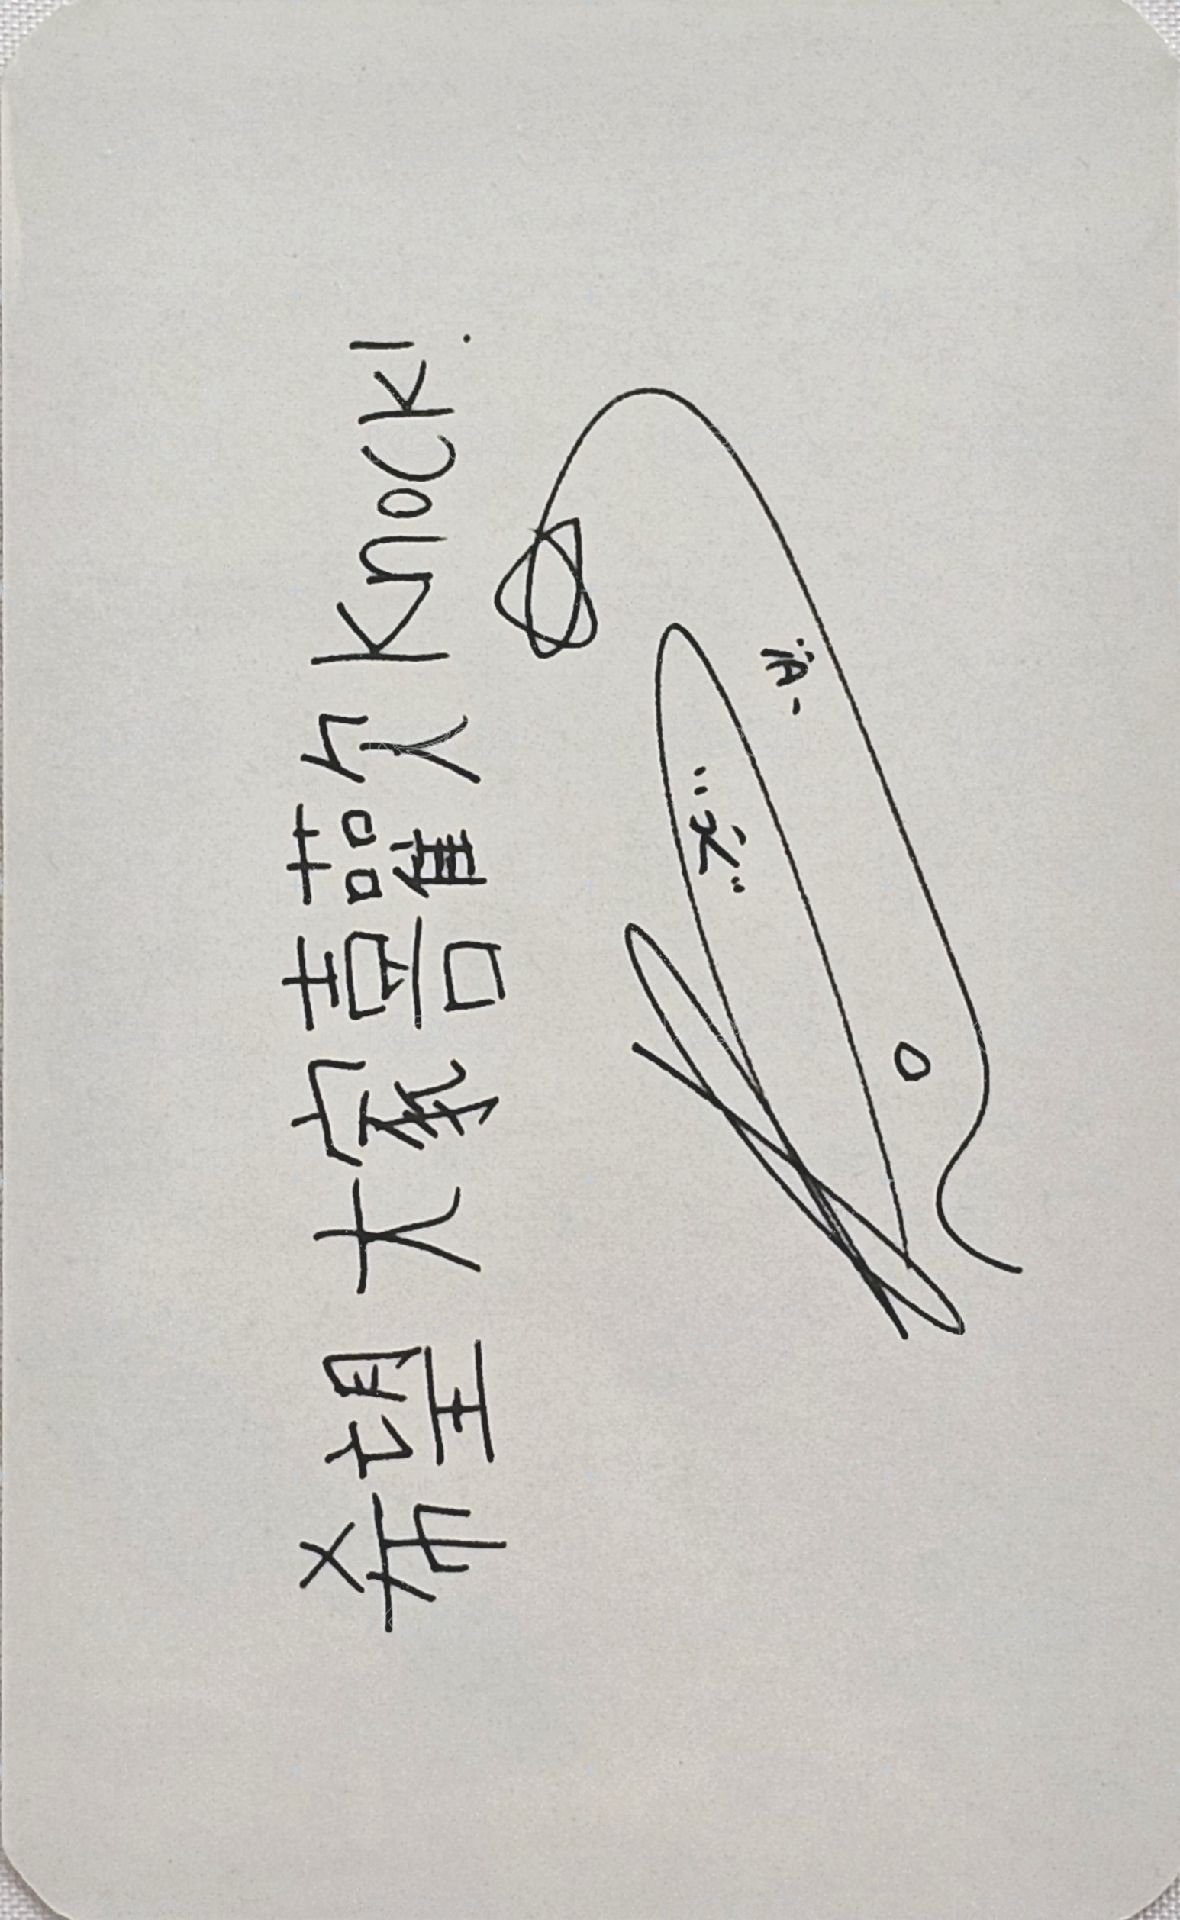 希望大家喜歡 Knock!